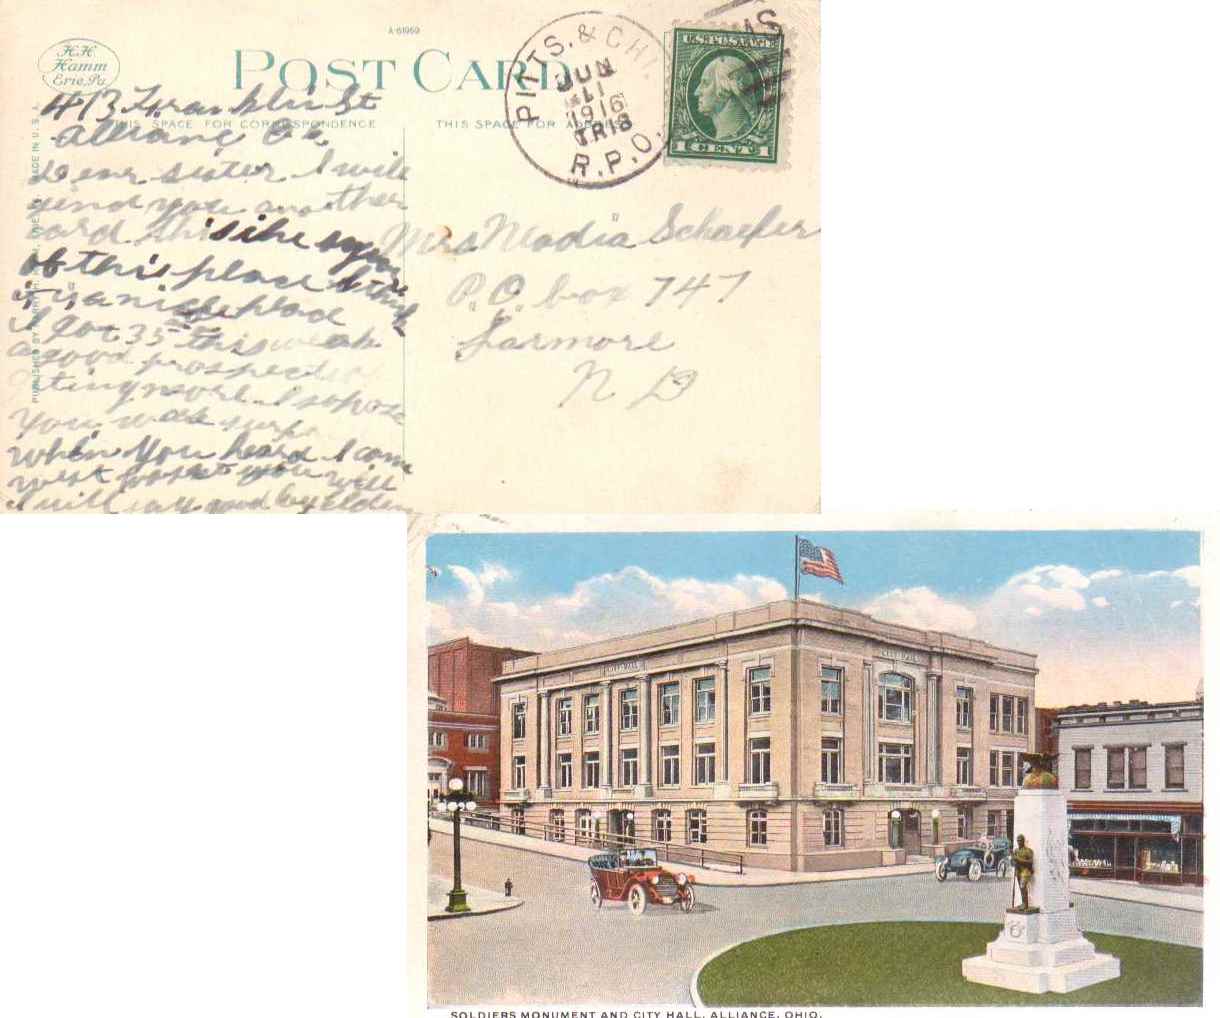 A-61969
H.H.
Hamm
Erie, Pa
POST CARD
THIS SPACE FOR CORRESPONDENCE
THIS SPACE FOR ADDRESS
PITTS. & CHI.
JUN
11
1916
TR18
R.P.O.
U.S. POSTAGE
1 CENT 1
413 Franklin St
Alliance
Dear sister I will
send you another
card this is the
of this place I think
it is a nice place
I got 35 this week
a good prospect of
more. I
You
when You heard I
west you will
I will say good by
Mrs Madia Schaefer
P.O. box 747
Larmore
N D
PUBLISHED BY HARRY H. HAMM, ERIE, PA.
MADE IN U.S.A.
CITY HALL
CITY HALL
SOLDIERS MONUMENT AND CITY HALL, ALLIANCE, OHIO.